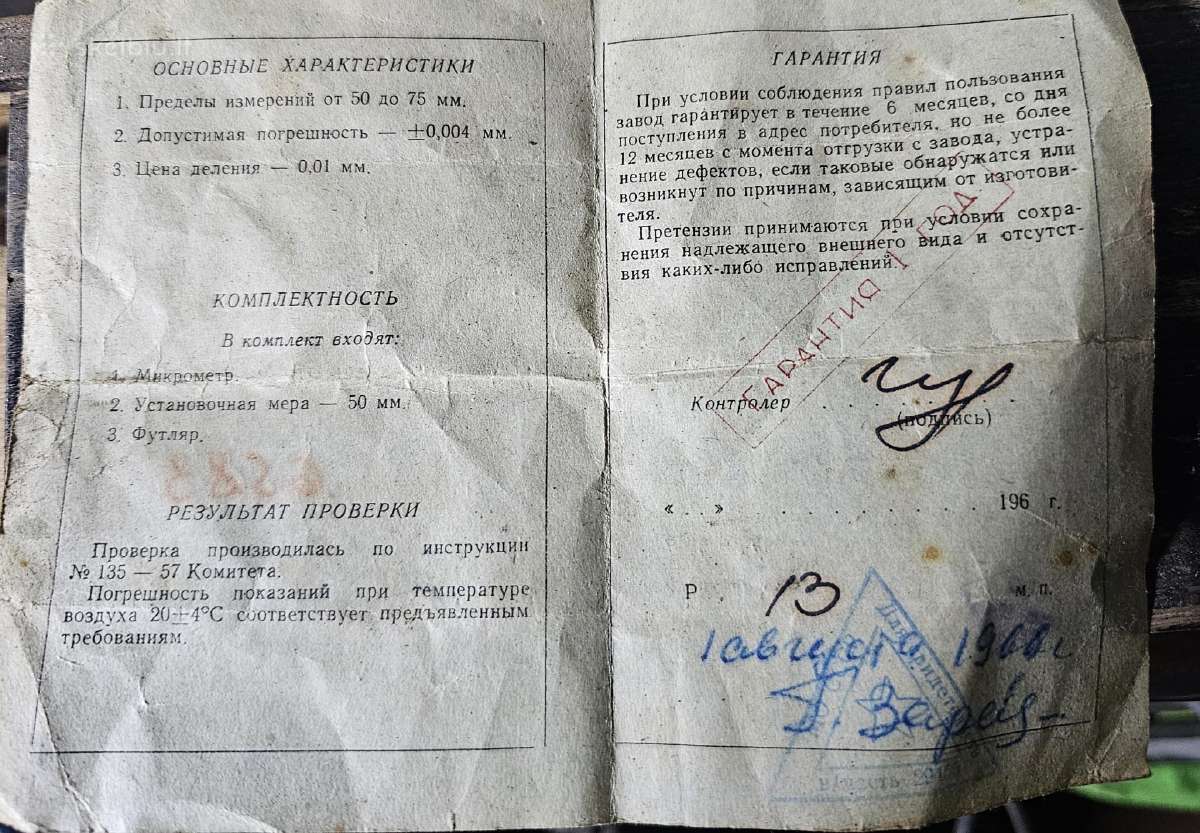 skelbiu.lt
ОСНОВНЫЕ ХАРАКТЕРИСТИКИ
1. Пределы измерений от 50 до 75 мм.
2. Допустимая погрешность — ±0,004 мм.
3. Цена деления — 0,01 мм.
КОМПЛЕКТНОСТЬ
В комплект входят:
1. Микрометр.
2. Установочная мера — 50 мм.
3. Футляр.
РЕЗУЛЬТАТ ПРОВЕРКИ
Проверка производилась по инструкции
№ 135 — 57 Комитета.
Погрешность показаний при температуре
воздуха 20±4°С соответствует предъявленным
требованиям.
ГАРАНТИЯ
При условии соблюдения правил пользования
завод гарантирует в течение 6 месяцев, со дня
поступления в адрес потребителя, но не более
12 месяцев с момента отгрузки с завода, устра-
нение дефектов, если таковые обнаружатся или
возникнут по причинам, зависящим от изготови-
теля.
Претензии принимаются при условии сохра-
нения надлежащего внешнего вида и отсутст-
вия каких-либо исправлений.
ГАРАНТИЯ 1 ГОД
Контролер . . . . . . . .
(подпись)
« . . » . . . . . . . . . . . 196 г.
Р . 13 м. п.
1 августа 1966 г